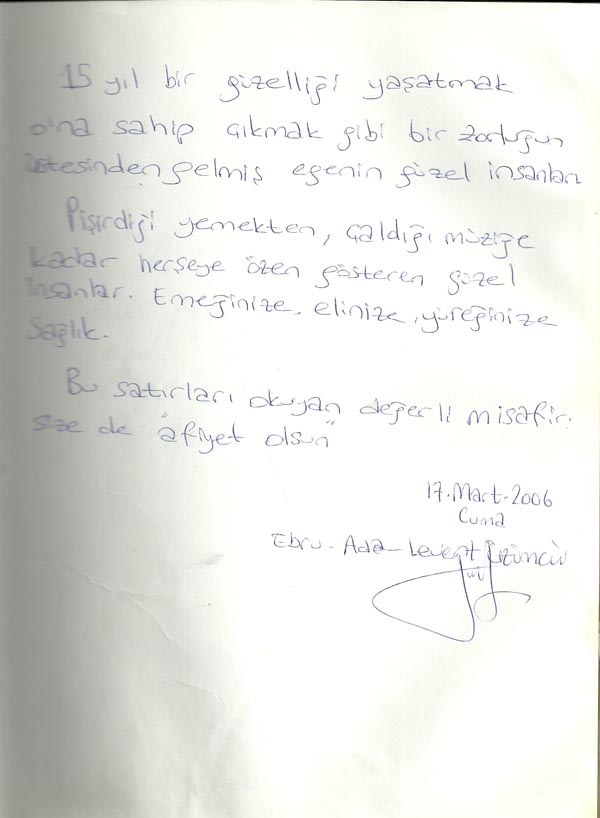 15 yıl bir güzelliği yaşatmak
o'na sahip çıkmak gibi bir zorluğun
üstesinden gelmiş egenin güzel insanları
Pişirdiği yemekten, çaldığı müziğe
kadar herşeye özen gösteren güzel
insanlar. Emeğinize, elinize, yüreğinize
sağlık.
Bu satırları okuyan değerli misafir.
size de "afiyet olsun"
17.Mart-2006
Cuma
Ebru - Ada - Levent Üzümcü